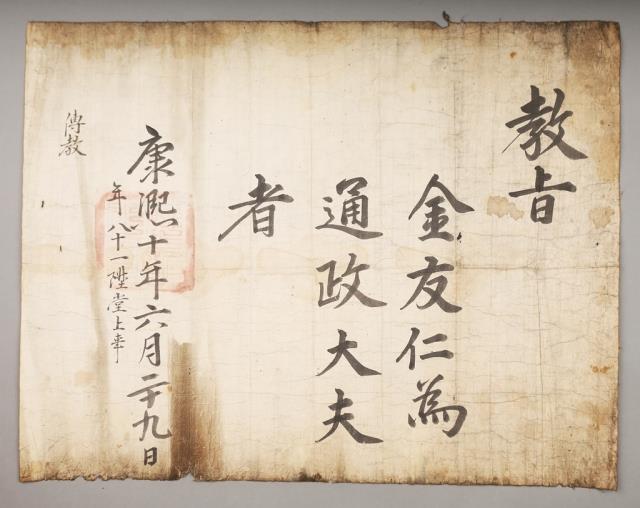 教旨
金友仁為
通政大夫
者
康熙十年六月二十九日
年八十一陞堂上事
傳教